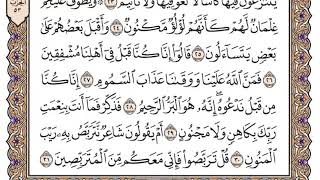 يَتَنَٰزَعُونَ فِيهَا كَأْسًا لَّا لَغْوٌ فِيهَا وَلَا تَأْثِيمٌ ٢٣ ۞ وَيَطُوفُ عَلَيْهِمْ
غِلْمَانٌ لَّهُمْ كَأَنَّهُمْ لُؤْلُؤٌ مَّكْنُونٌ ٢٤ وَأَقْبَلَ بَعْضُهُمْ عَلَىٰ
بَعْضٍ يَتَسَآءَلُونَ ٢٥ قَالُوٓا۟ إِنَّا كُنَّا قَبْلُ فِىٓ أَهْلِنَا مُشْفِقِينَ
٢٦ فَمَنَّ ٱللَّهُ عَلَيْنَا وَوَقَىٰنَا عَذَابَ ٱلسَّمُومِ ٢٧ إِنَّا كُنَّا
مِن قَبْلُ نَدْعُوهُ إِنَّهُۥ هُوَ ٱلْبَرُّ ٱلرَّحِيمُ ٢٨ فَذَكِّرْ فَمَآ أَنتَ بِنِعْمَتِ
رَبِّكَ بِكَاهِنٍ وَلَا مَجْنُونٍ ٢٩ أَمْ يَقُولُونَ شَاعِرٌ نَّتَرَبَّصُ بِهِۦ رَيْبَ
ٱلْمَنُونِ ٣٠ قُلْ تَرَبَّصُوا۟ فَإِنِّى مَعَكُم مِّنَ ٱلْمُتَرَبِّصِينَ ٣١